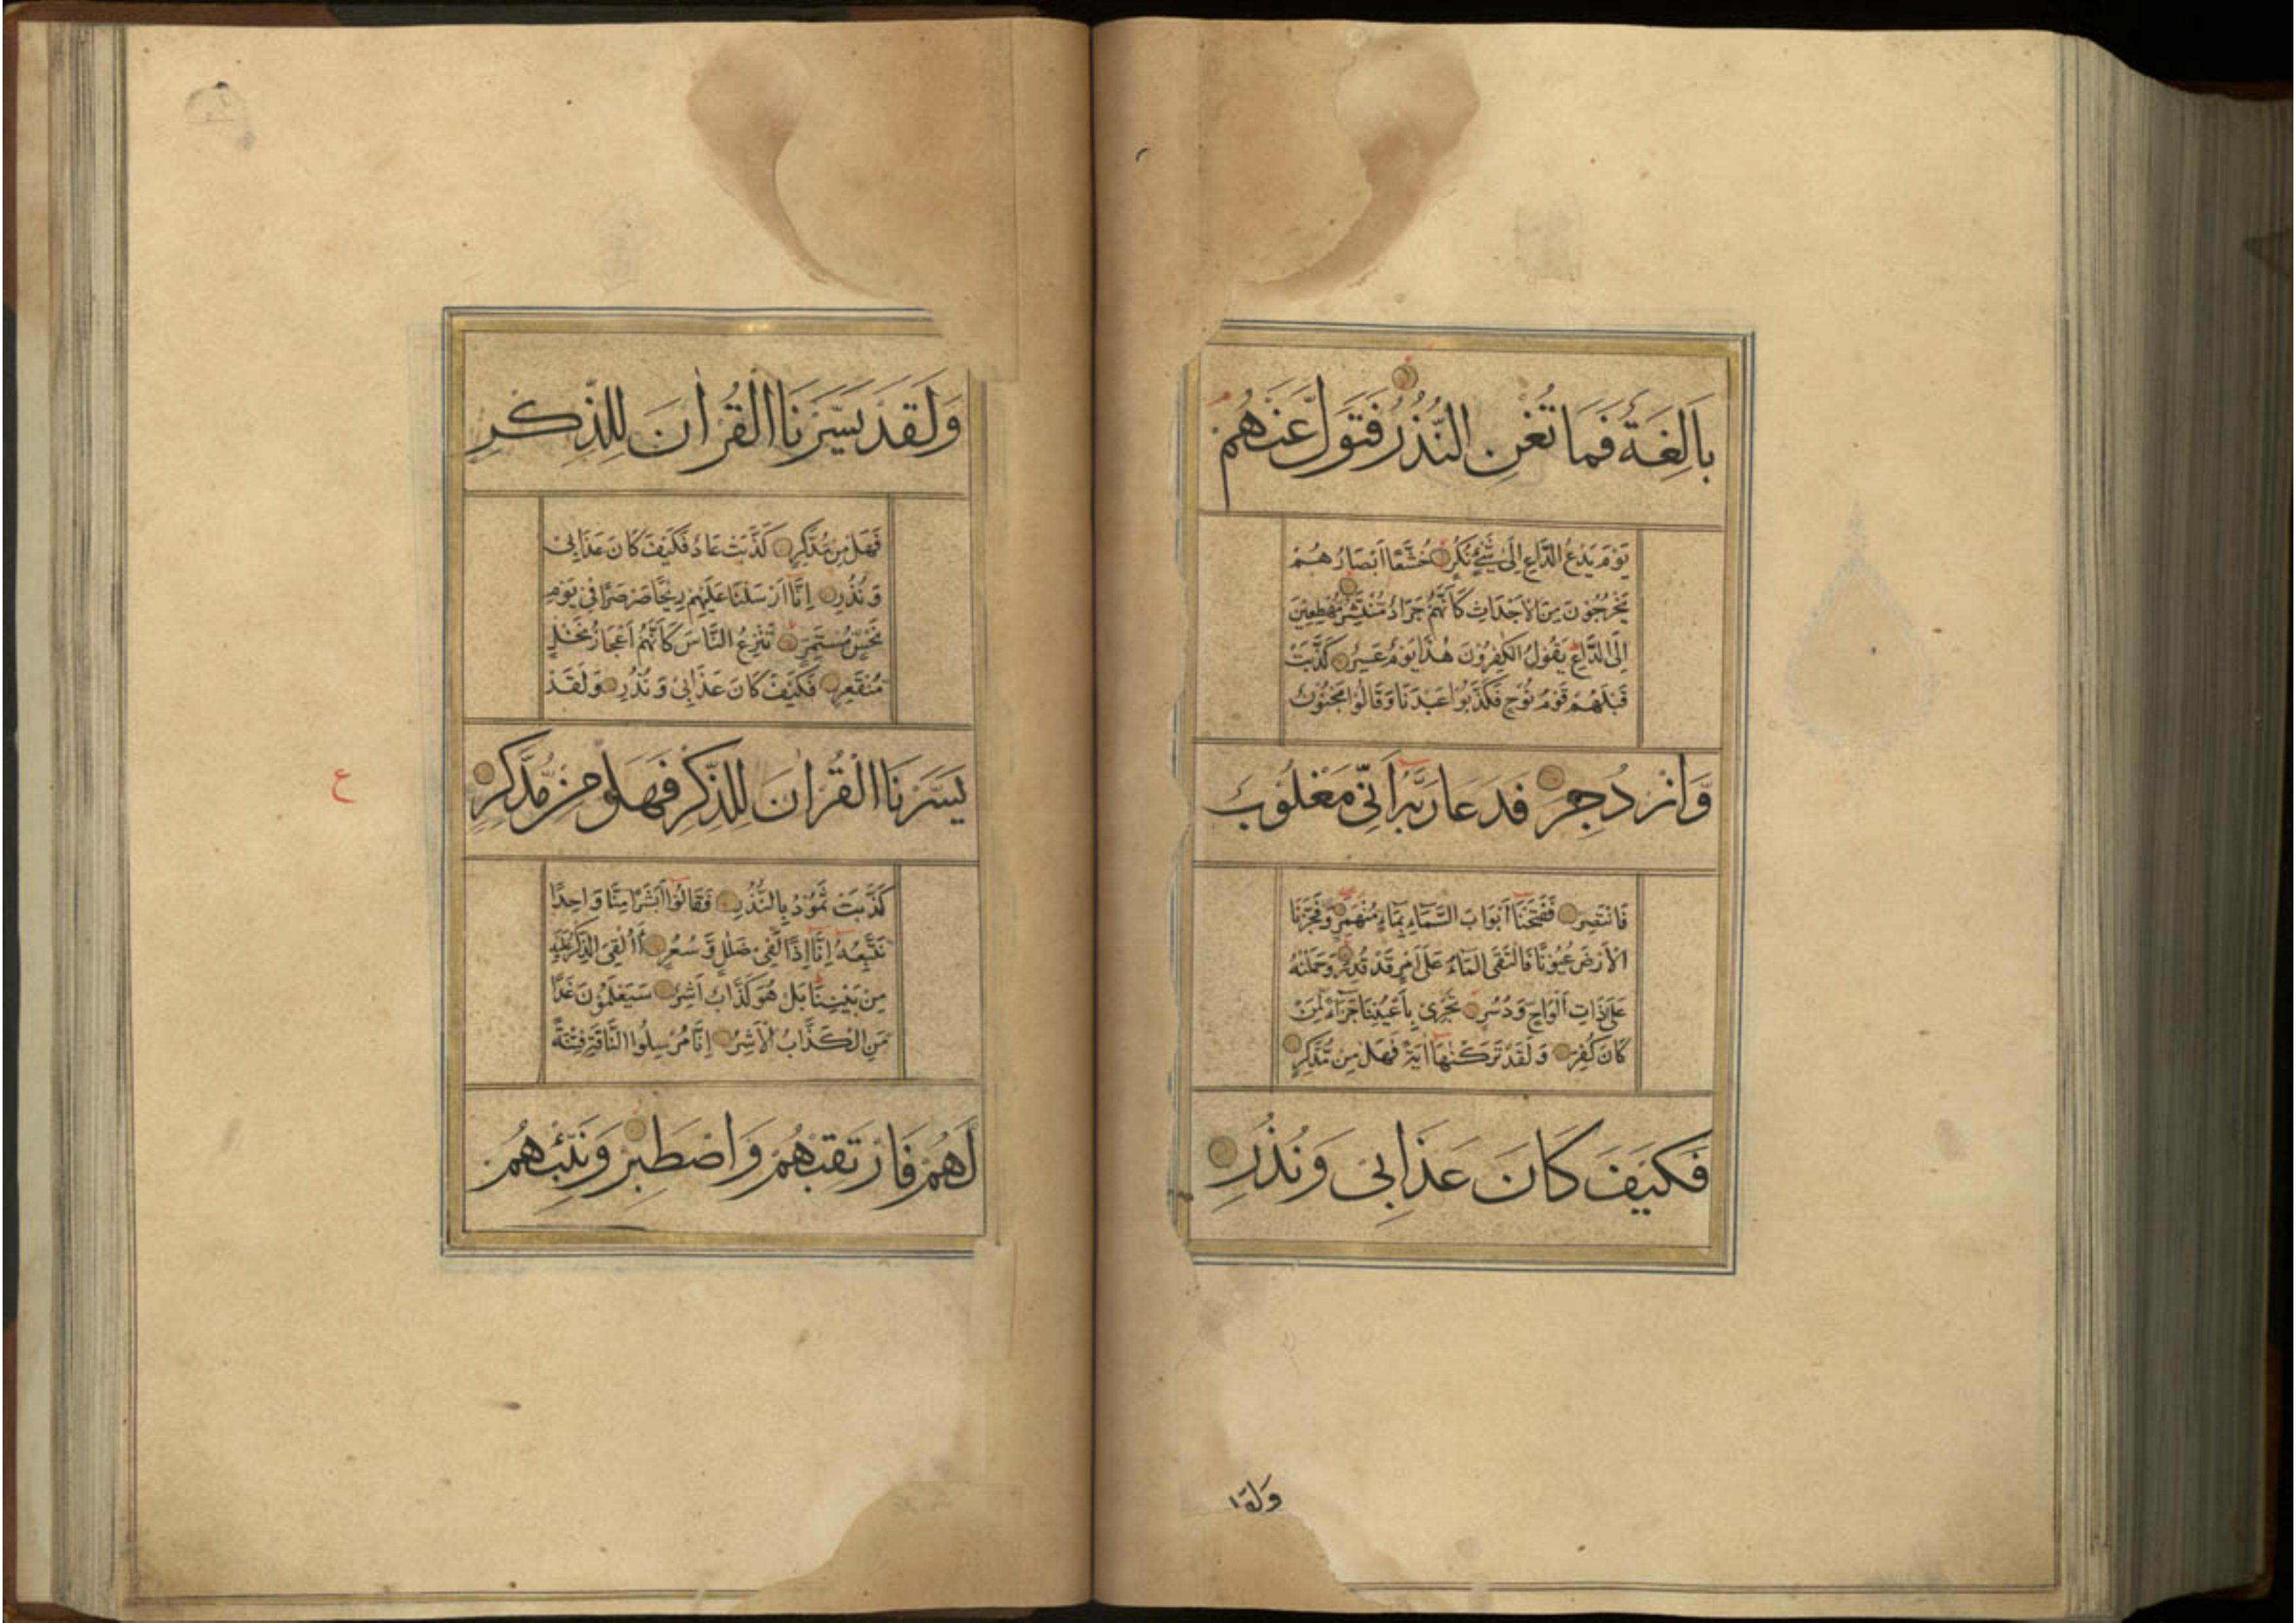 بَالِغَةٌ فَمَا تُغْنِ النُّذُرُ فَتَوَلَّ عَنْهُمْ
يَوْمَ يَدْعُ الدَّاعِ اِلٰى شَيْءٍ نُكُرٍ خُشَّعًا اَبْصَارُهُمْ
يَخْرُجُوْنَ مِنَ الْاَجْدَاثِ كَاَنَّهُمْ جَرَادٌ مُّنْتَشِرٌ مُّهْطِعِيْنَ
اِلَى الدَّاعِ يَقُوْلُ الْكٰفِرُوْنَ هٰذَا يَوْمٌ عَسِرٌ كَذَّبَتْ
قَبْلَهُمْ قَوْمُ نُوْحٍ فَكَذَّبُوْا عَبْدَنَا وَقَالُوْا مَجْنُوْنٌ
وَّازْدُجِرَ فَدَعَا رَبَّهٗ اَنِّيْ مَغْلُوْبٌ
فَانْتَصِرْ فَفَتَحْنَا اَبْوَابَ السَّمَآءِ بِمَآءٍ مُنْهَمِرٍ وَفَجَّرْنَا
الْاَرْضَ عُيُوْنًا فَالْتَقَى الْمَآءُ عَلٰى اَمْرٍ قَدْ قُدِرَ وَحَمَلْنٰهُ
عَلٰى ذَاتِ اَلْوَاحٍ وَدُسُرٍ تَجْرِيْ بِاَعْيُنِنَا جَزَآءً لِّمَنْ
كَانَ كُفِرَ وَلَقَدْ تَرَكْنٰهَا اٰيَةً فَهَلْ مِنْ مُّدَّكِرٍ
فَكَيْفَ كَانَ عَذَابِيْ وَنُذُرِ
وَلَقَدْ يَسَّرْنَا الْقُرْاٰنَ لِلذِّكْرِ
فَهَلْ مِنْ مُّدَّكِرٍ كَذَّبَتْ عَادٌ فَكَيْفَ كَانَ عَذَابِيْ
وَنُذُرِ اِنَّا اَرْسَلْنَا عَلَيْهِمْ رِيْحًا صَرْصَرًا فِيْ يَوْمِ
نَحْسٍ مُسْتَمِرٍّ تَنْزِعُ النَّاسَ كَاَنَّهُمْ اَعْجَازُ نَخْلٍ
مُنْقَعِرٍ فَكَيْفَ كَانَ عَذَابِيْ وَنُذُرِ وَلَقَدْ
يَسَّرْنَا الْقُرْاٰنَ لِلذِّكْرِ فَهَلْ مِنْ مُّدَّكِرٍ
ع
كَذَّبَتْ ثَمُوْدُ بِالنُّذُرِ فَقَالُوْا اَبَشَرًا مِنَّا وَاحِدًا
نَتَّبِعُهٗ اِنَّا اِذًا لَّفِيْ ضَلٰلٍ وَّسُعُرٍ ءَاُلْقِيَ الذِّكْرُ عَلَيْهِ
مِنْ بَيْنِنَا بَلْ هُوَ كَذَّابٌ اَشِرٌ سَيَعْلَمُوْنَ غَدًا
مَنِ الْكَذَّابُ الْاَشِرُ اِنَّا مُرْسِلُوا النَّاقَةِ فِتْنَةً
لَهُمْ فَارْتَقِبْهُمْ وَاصْطَبِرْ وَنَبِّئْهُمْ